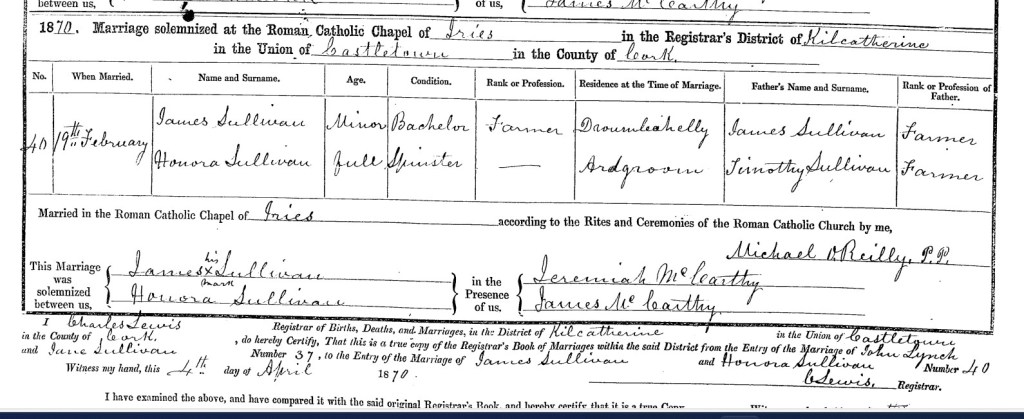 between us, of us, James McCarthy
1870. Marriage solemnized at the Roman Catholic Chapel of Iries in the Registrar's District of Kilcatherine
in the Union of Castletown in the County of Cork.
No. When Married. Name and Surname. Age. Condition. Rank or Profession. Residence at the Time of Marriage. Father's Name and Surname. Rank or Profession of Father.
40 19th February James Sullivan Minor Bachelor Farmer Droumleahelly James Sullivan Farmer
Honora Sullivan full Spinster — Ardgroom Timothy Sullivan Farmer
Married in the Roman Catholic Chapel of Iries according to the Rites and Ceremonies of the Roman Catholic Church by me,
Michael O'Reilly, P.P.
This Marriage was solemnized between us, James his x mark Sullivan
Honora Sullivan
in the Presence of us. Jeremiah McCarthy
James McCarthy
I Charles Lewis Registrar of Births, Deaths, and Marriages, in the District of Kilcatherine in the Union of Castletown
in the County of Cork. , do hereby Certify, That this is a true copy of the Registrar's Book of Marriages within the said District from the Entry of the Marriage of John Lynch
and Jane Sullivan Number 37, to the Entry of the Marriage of James Sullivan and Honora Sullivan Number 40
Witness my hand, this 4th day of April 1870. C Lewis, Registrar.
I have examined the above, and have compared it with the said original Registrar's Book, and hereby certify that it is a true Copy